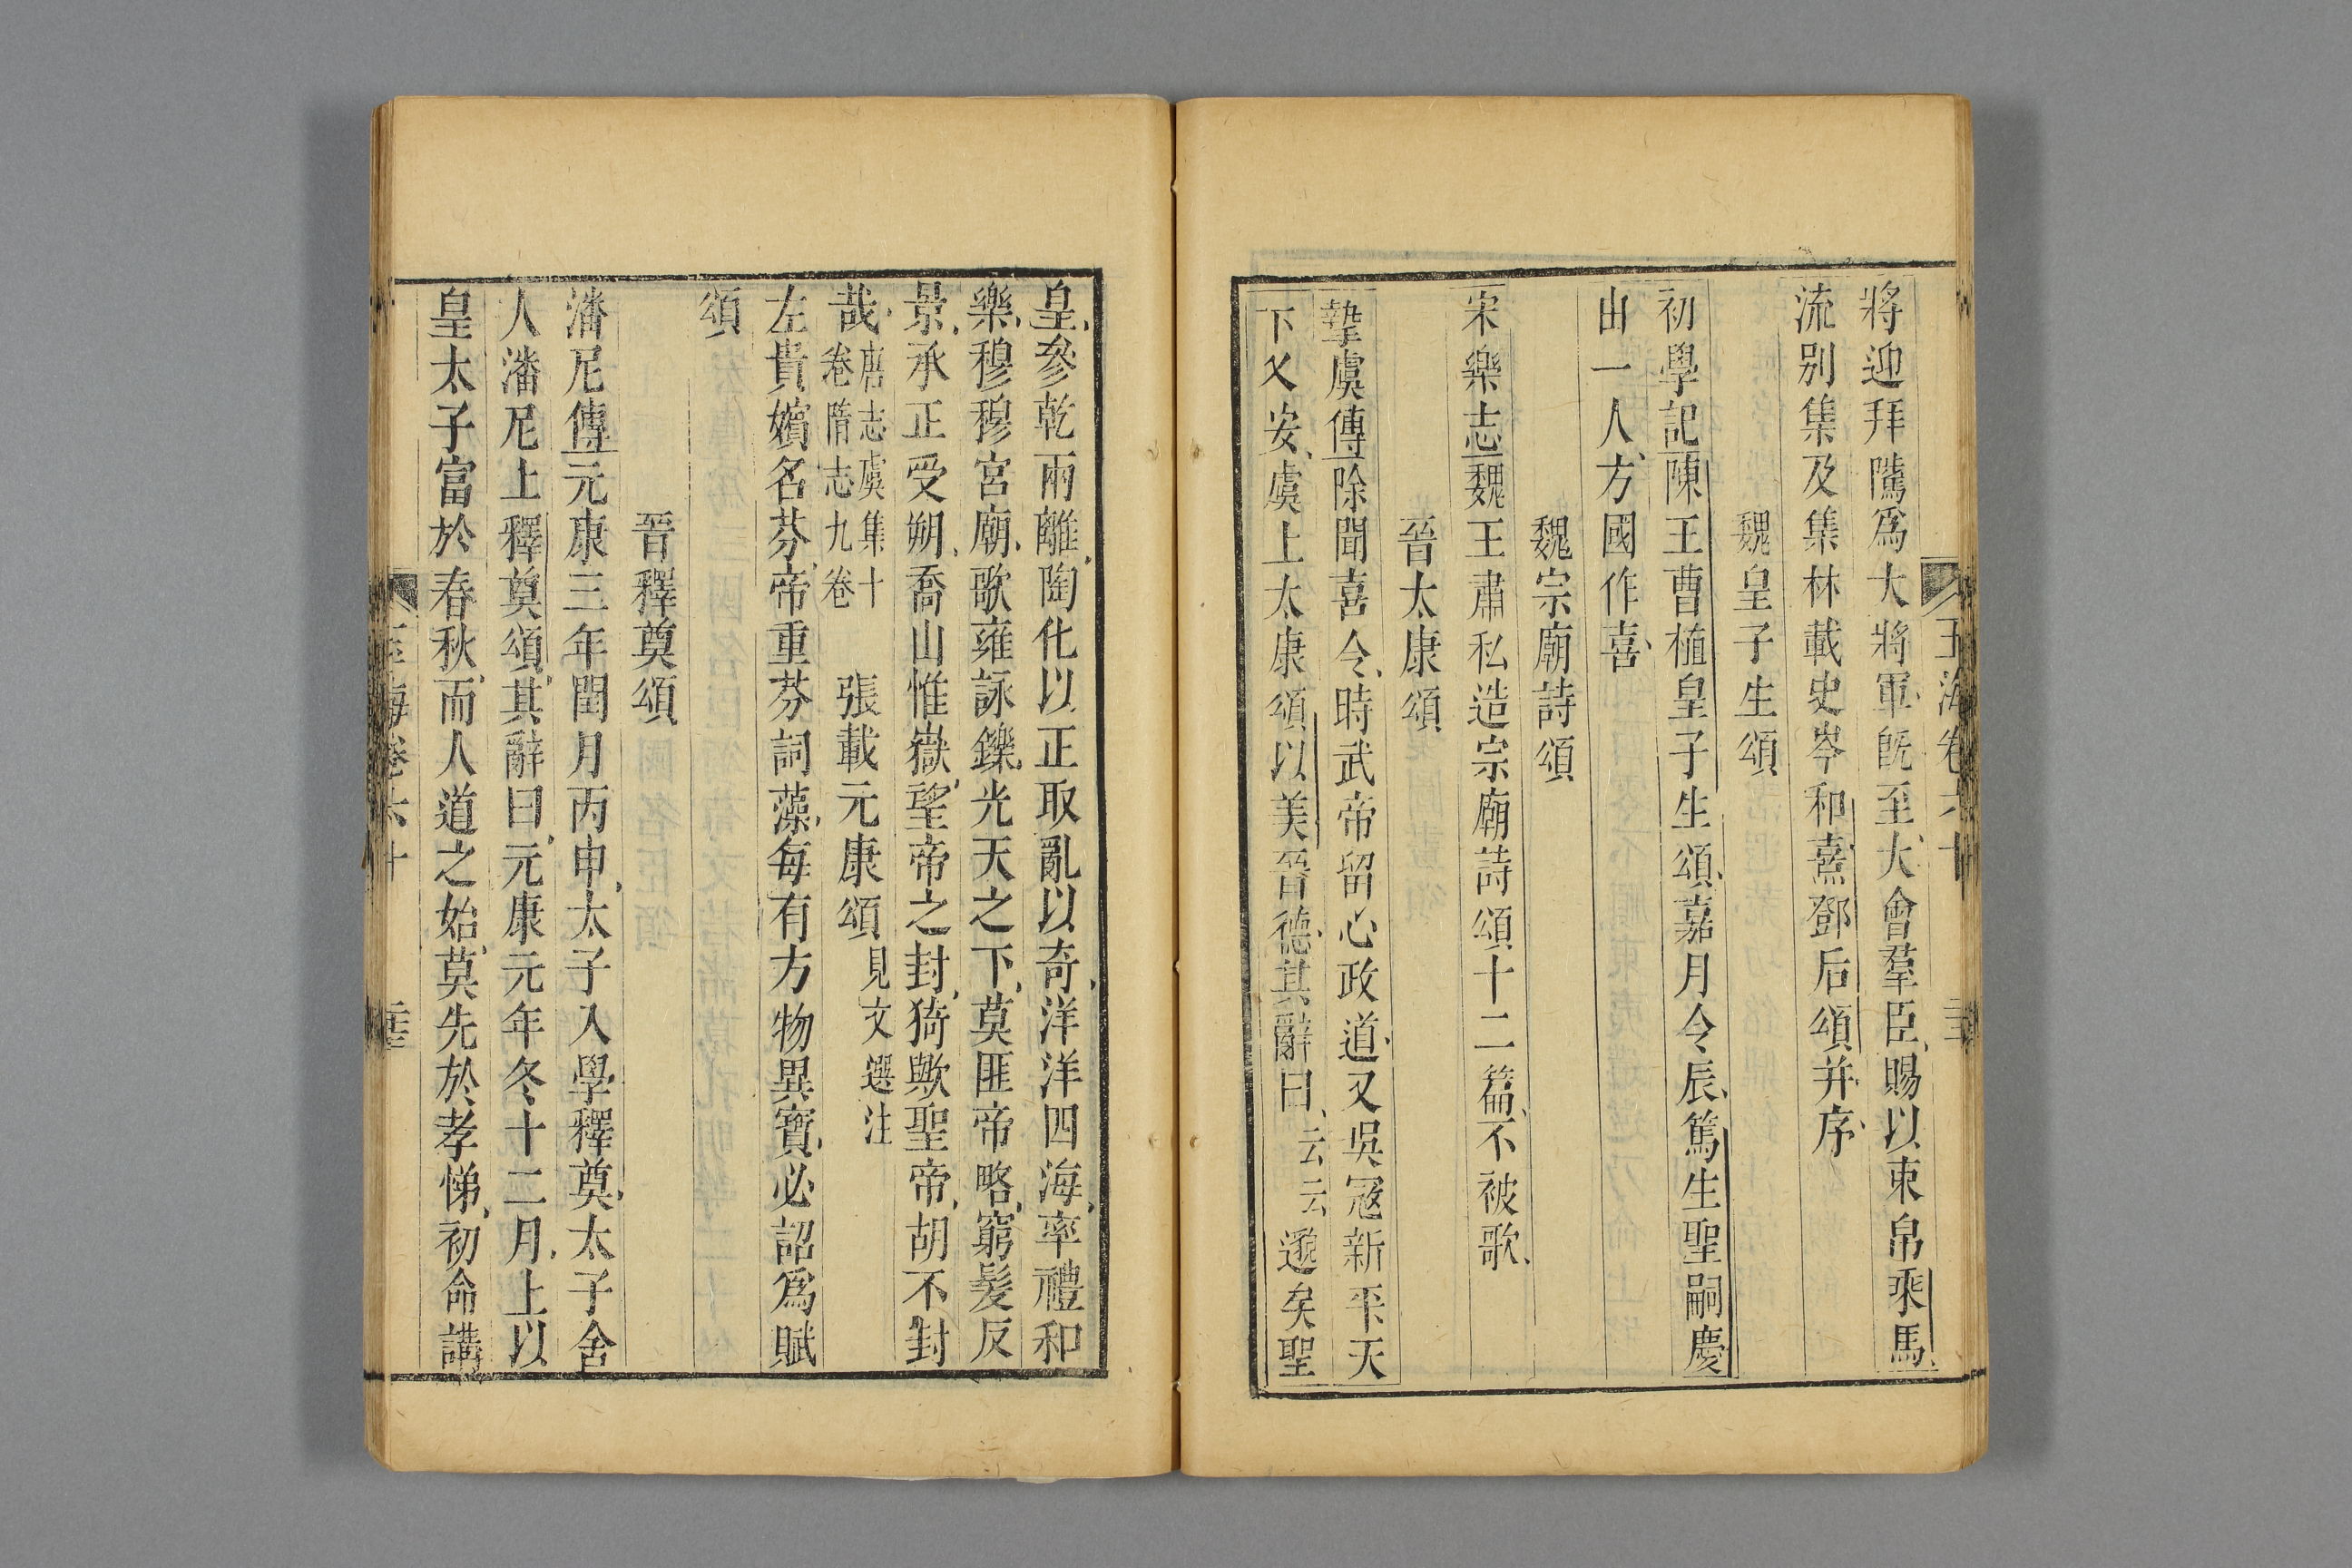 將迎拜隲爲大將軍旣至大會羣臣賜以束帛乘馬
流別集及集林載史岑和熹鄧后頌并序
魏皇子生頌
初學記陳王曹植皇子生頌嘉月令辰篤生聖嗣慶
由一人方國作喜
魏宗廟詩頌
宋樂志魏王肅私造宗廟詩頌十二篇不被歌
晉太康頌
摯虞傳除聞喜令時武帝留心政道又吳寇新平天
下乂安虞上太康頌以美晉德其辭曰云云邈矣聖
皇參乾兩離陶化以正取亂以奇洋洋四海率禮和
樂穆穆宮廟歌雍詠鑠光天之下莫匪帝略窮髮反
景承正受朔喬山惟嶽望帝之封猗歟聖帝胡不封
哉唐志虞集十卷隋志九卷 張載元康頌見文選注
左貴嬪名芬帝重芬詞藻每有方物異寶必詔爲賦
頌
晉釋奠頌
潘尼傳元康三年閏月丙申太子入學釋奠太子舍
人潘尼上釋奠頌其辭曰元康元年冬十二月上以
皇太子富於春秋而人道之始莫先於孝悌初命講
玉海卷六十